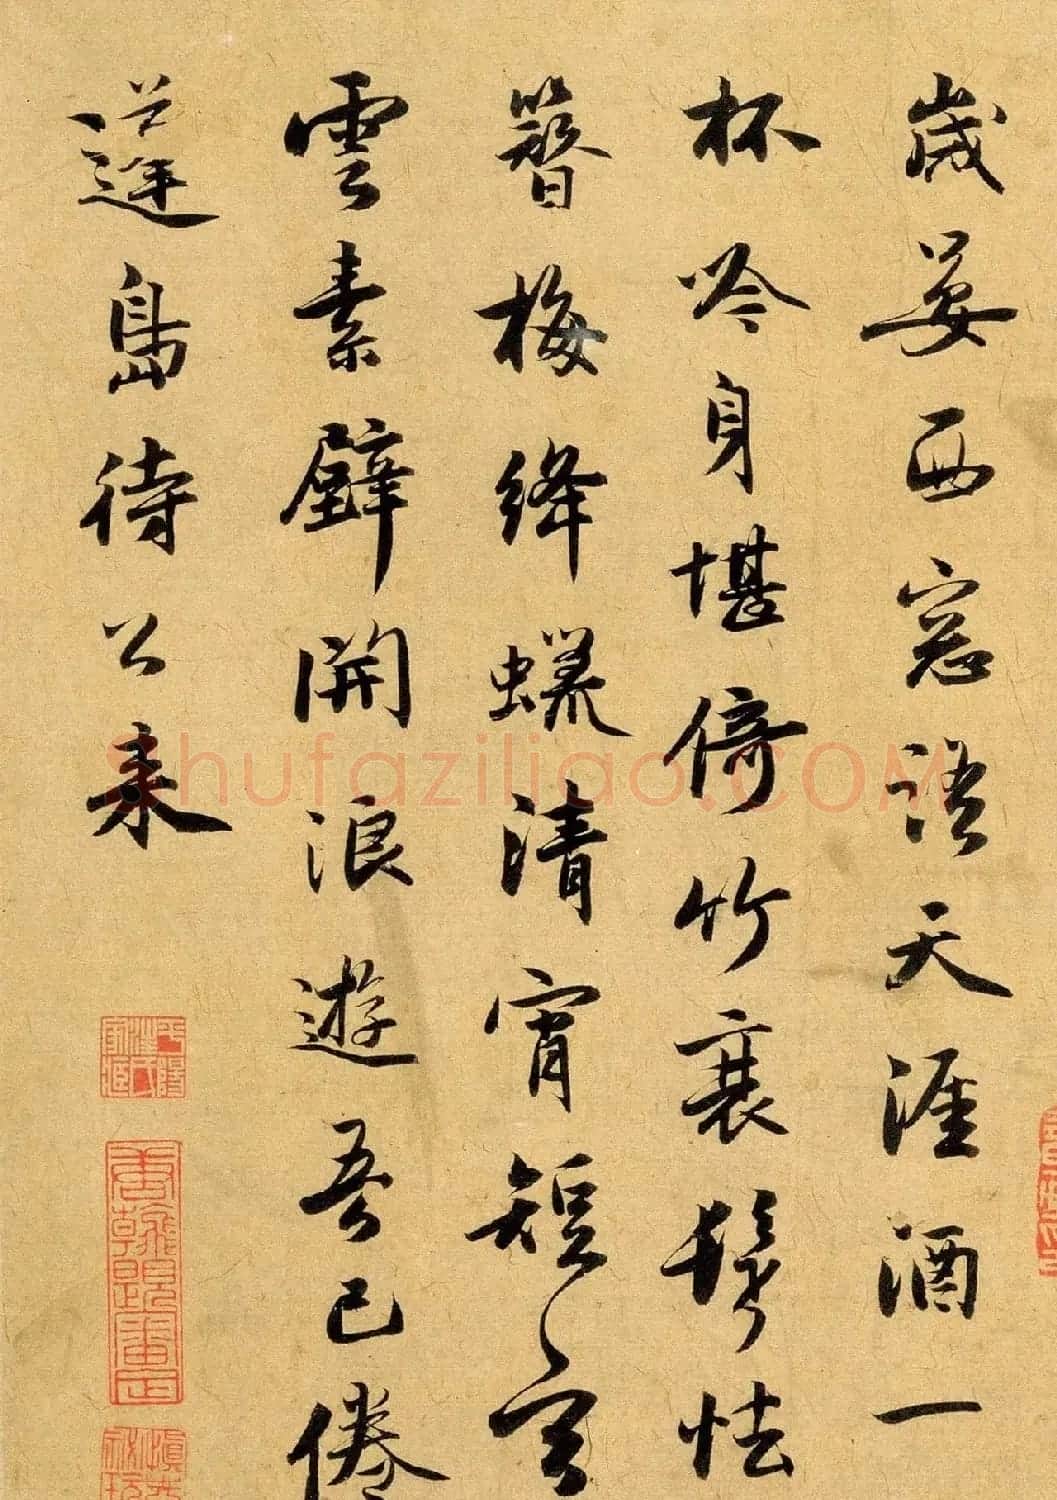 歲晏西窓語天涯酒一
杯吟身堪倚竹衰鬢怯
簪梅絳蠟清宵短
雲素壁開浪遊吾已倦
蓬島待公来
Shufaziliao.COM